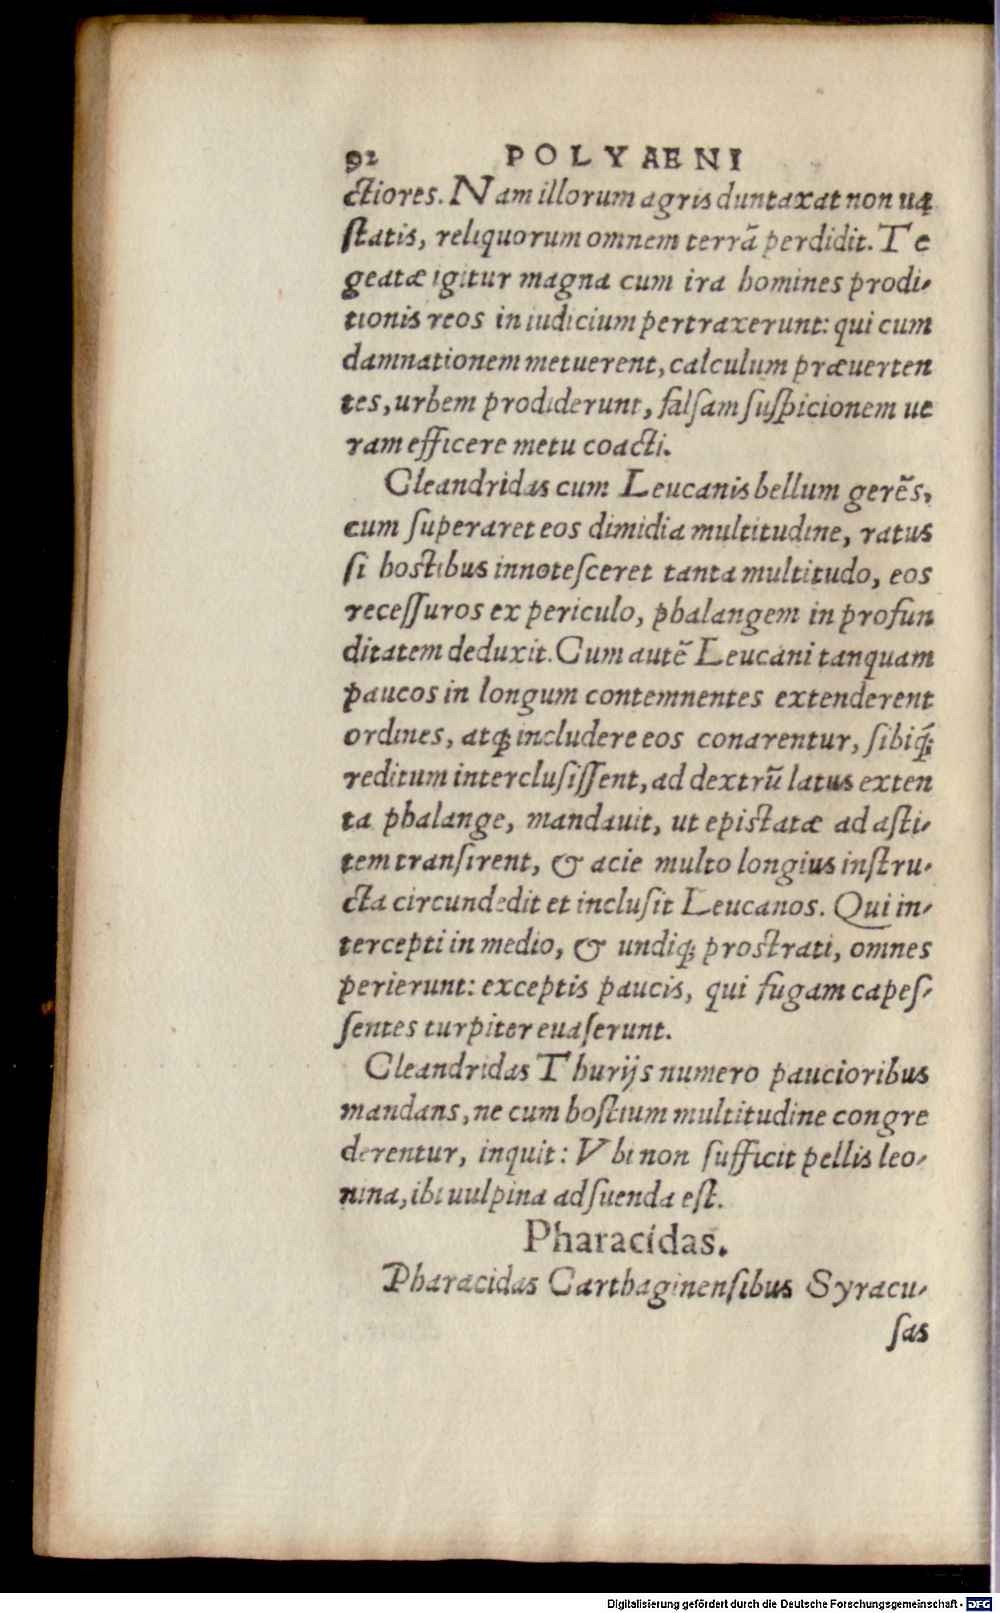 92 POLYAENI
ctiores. Nam illorum agris duntaxat non ua
ſtatis, reliquorum omnem terrã perdidit. Te
geatæ igitur magna cum ira homines prodi-
tionis reos in iudicium pertraxerunt: qui cum
damnationem metuerent, calculum præuerten
tes, urbem prodiderunt, falſam ſuſpicionem ue
ram efficere metu coacti.
Cleandridas cum Leucanis bellum gerẽs,
cum ſuperaret eos dimidia multitudine, ratus
ſi hoſtibus innoteſceret tanta multitudo, eos
receſſuros ex periculo, phalangem in profun
ditatem deduxit. Cum autẽ Leucani tanquam
paucos in longum contemnentes extenderent
ordines, atq; includere eos conarentur, ſibiq́;
reditum intercluſiſſent, ad dextrũ latus exten
ta phalange, mandauit, ut epiſtatæ ad aſti-
tem tranſirent, & acie multo longius inſtru-
cta circundedit et incluſit Leucanos. Qui in-
tercepti in medio, & undiq; proſtrati, omnes
perierunt: exceptis paucis, qui fugam capeſ-
ſentes turpiter euaſerunt.
Cleandridas Thurijs numero paucioribus
mandans, ne cum hoſtium multitudine congre
derentur, inquit: Vbi non ſufficit pellis leo-
nina, ibi uulpina adſuenda eſt.
Pharacidas.
Pharacidas Carthaginenſibus Syracu-
ſas
Digitalisierung gefördert durch die Deutsche Forschungsgemeinschaft - DFG